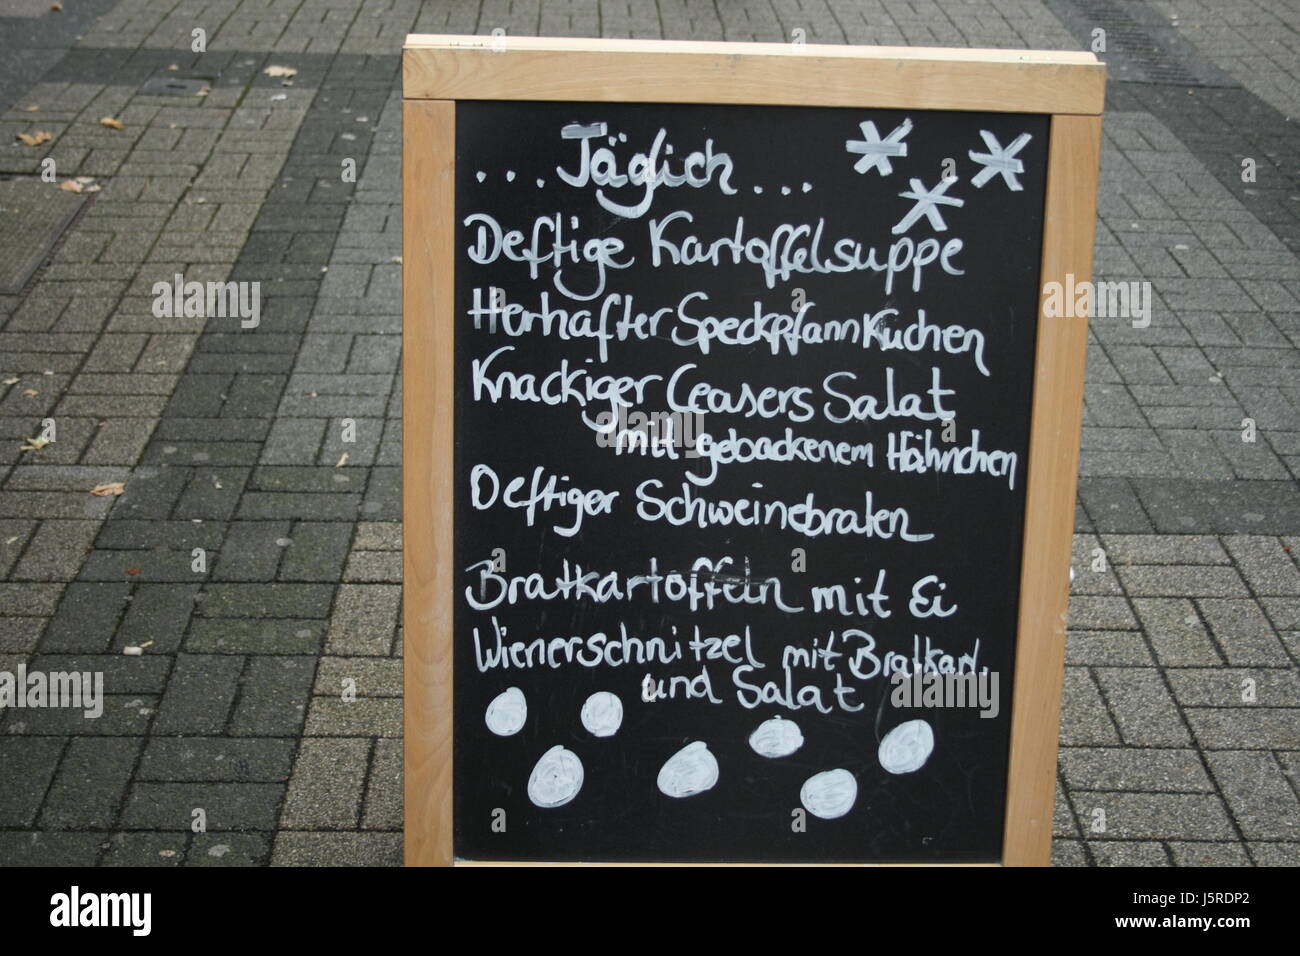 ...Täglich...
Deftige Kartoffelsuppe
Herhafter Speckpfannkuchen
Knackiger Ceasers Salat
mit gebackenem Hähnchen
Deftiger Schweinebraten
Bratkartoffeln mit Ei
Wienerschnitzel mit Bratkart.
und Salat
alamy stock photo
alamy
J5RDP2
www.alamy.com